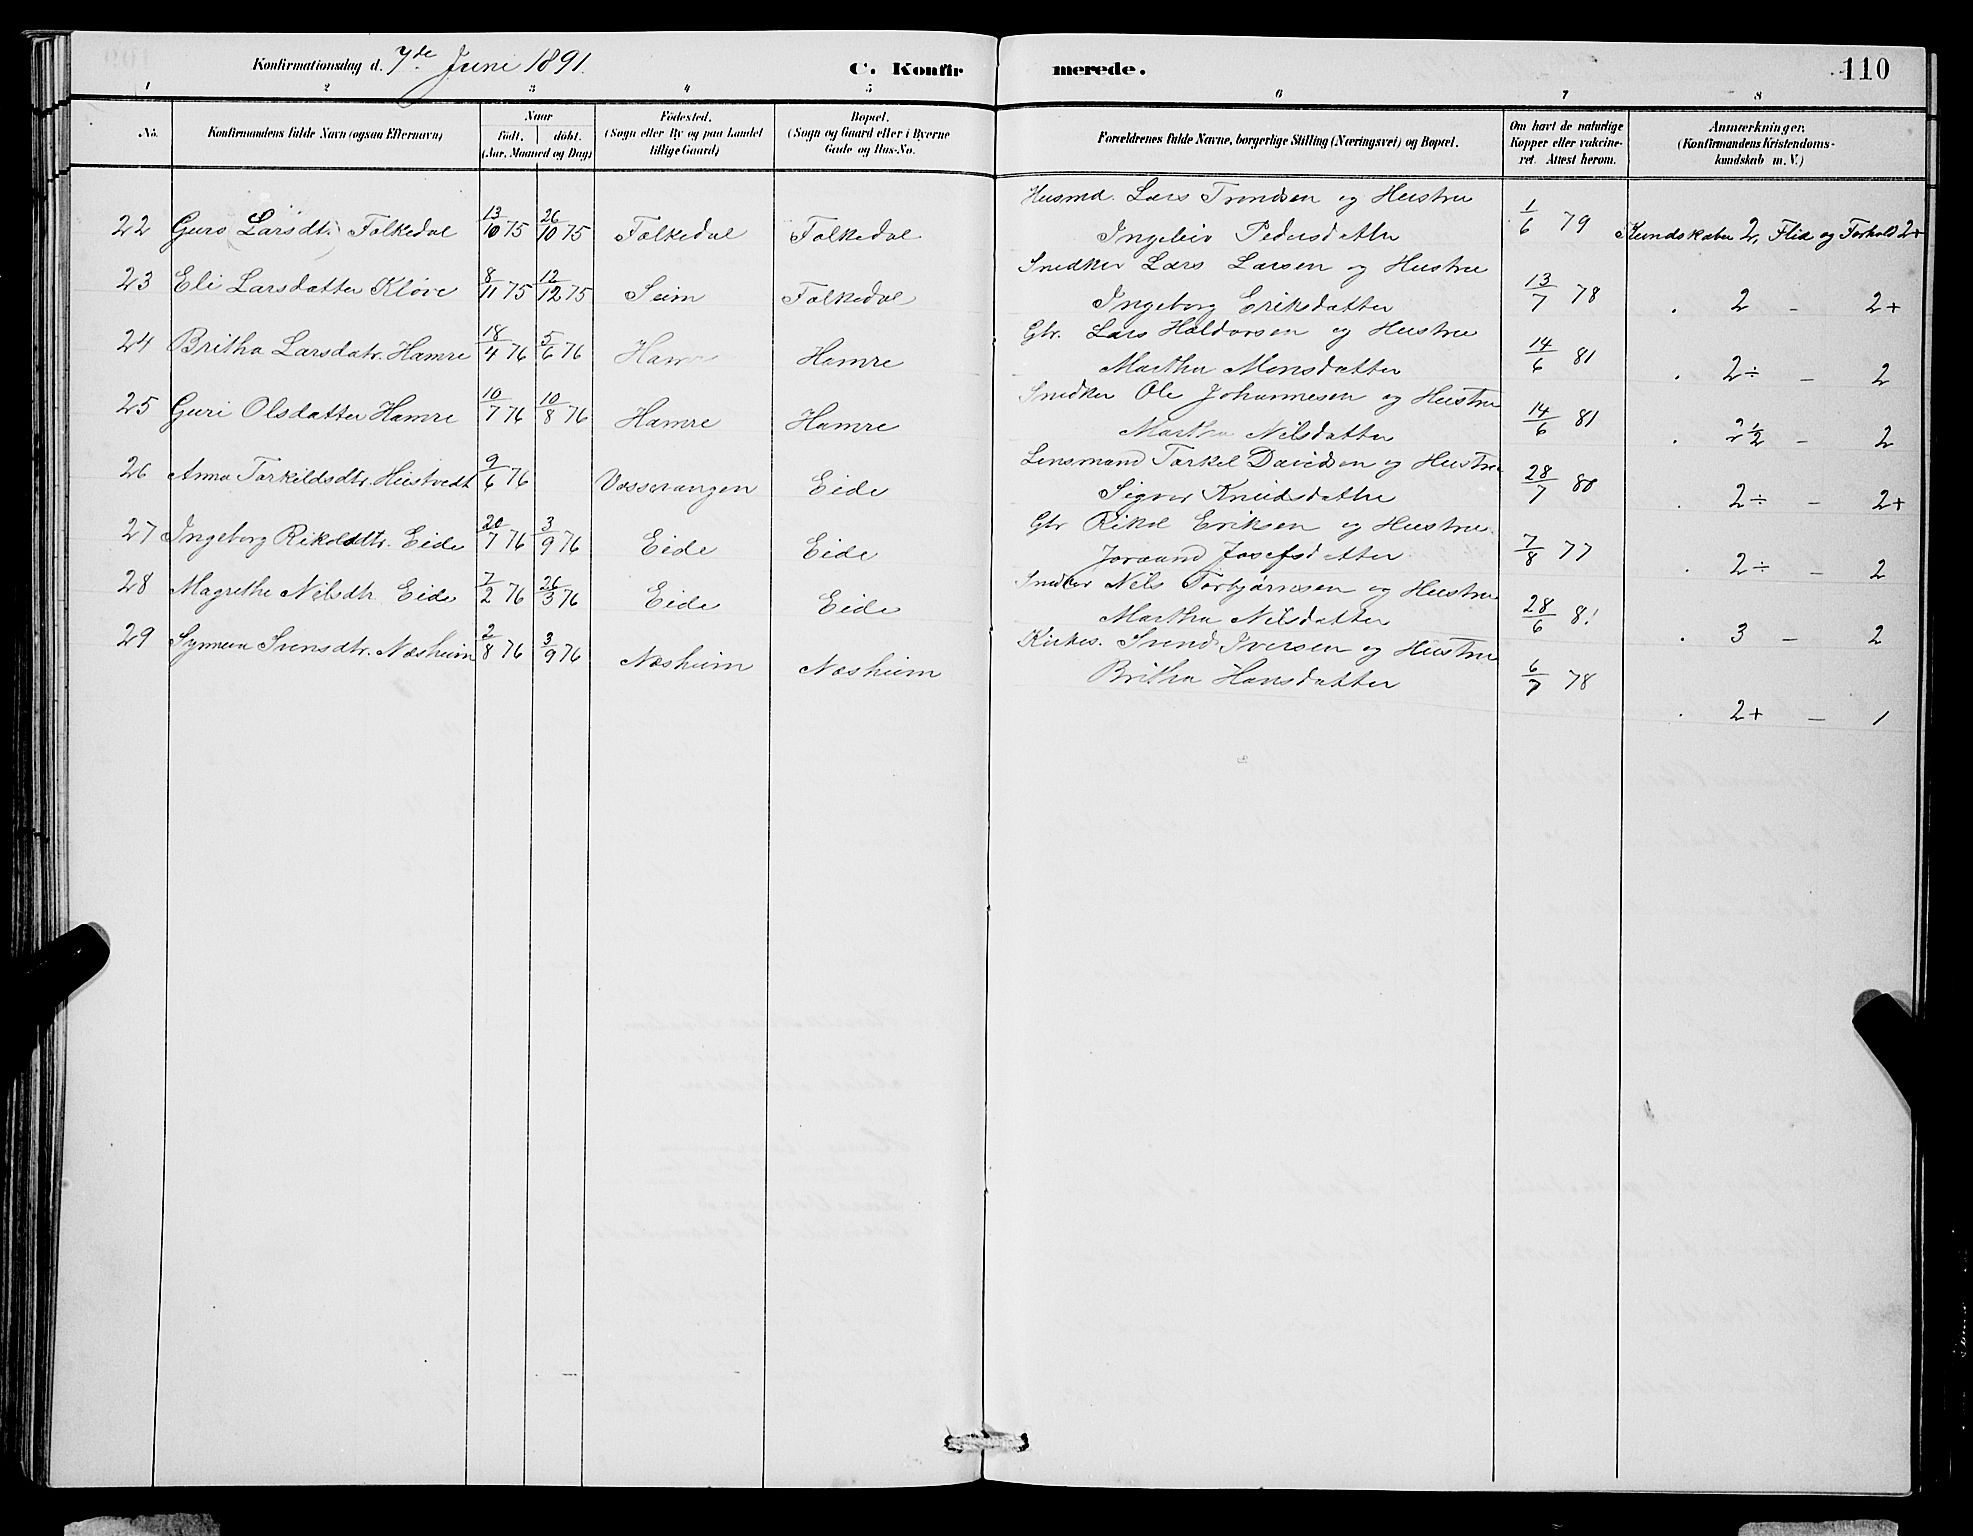 Konfirmationsdag d. 7de Juni 1891. C. Konfirmerede. 110
1 2 3 4 5 6 7 8
No. Konfirmandens fulde Navn (ogsaa Efternavn) Naar født. døbt. (Aar, Maaned og Dag) Fødested. (Sogn eller By og paa Landet tillige Gaard) Bopæl. (Sogn og Gaard eller i Byerne Gade og Hus-No. Forældrenes fulde Navne, borgerlige Stilling (Næringsvei) og Bopæl. Om havt de naturlige Kopper eller vakcineret. Attest herom. Anmærkninger. (Konfirmandens Kristendomskundskab m. V.)
22 Guro (Larsdt.) Folkedal 13/10 75 26/10 75 Folkedal Folkedal Husmd. Lars Trondsen og Hustru Ingeleiv Pedersdatter 1/6 79 Kundskaber 2, Flid og Forhold 2+
23 Eli Larsdatter Kløve 8/11 75 12/12 75 Seim Folkedal Snedker Lars Larsen og Hustru Ingeborg Eriksdatter 13/7 78 . 2 – 2+
24 Britha Larsdatr. Hamre 18/4 76 5/6 76 Hamre Hamre Gbr. Lars Haldorsen og Hustru Martha Monsdatter 14/6 81 . 2÷ – 2
25 Guri Olsdatter Hamre 10/7 76 10/8 76 Hamre Hamre Snedker Ole Johannesen og Hustru Martha Nilsdatter 14/6 81 . 2 1/2 – 2
26 Anna Torkildsdtr. Hustvedt 9/6 76 Vossevangen Eide Lensmand Torkel Davidsen og Hustru Sigvor Knudsdatter 28/7 80 . 2÷ – 2+
27 Ingeborg Rikoldtr. Eide 20/7 76 3/9 76 Eide Eide Gbr Rikol Eriksen og Hustru Joraand Josefsdatter 7/8 77 . 2÷ – 2
28 Magrethe Nilsdtr Eide 7/2 76 26/3 76 Eide Eide Snedker Nils Torbjørnsen og Hustru Martha Nilsdatter 28/6 81 . 3 – 2
29 Synneva Svensdtr. Næsheim 2/8 76 3/9 76 Næsheim Næsheim Kirkes. Svend Iversen og Hustru Britha Hansdatter 6/7 78 . 2+ – 1